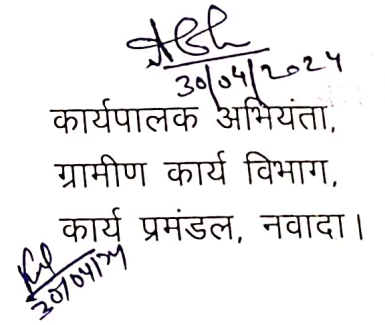 30/04/2024
कार्यपालक अभियंता,
ग्रामीण कार्य विभाग,
कार्य प्रमंडल, नवादा।
30/04/24